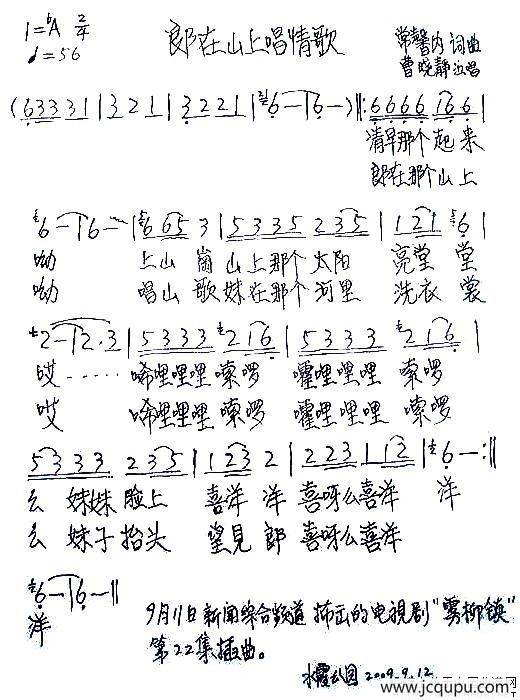 1=ᵇA 2/4
♩=56
郎在山上唱情歌
常馨内 词曲
曹晓静 演唱
(6 3 3 3 1 | 3 2 1 | 3 2 2 1 | 6 - | 6 - ) ‖: 6 6 6 6 1 6 6 |
清早那个起来
郎在那个山上
6 - | 6 - | 6 6 5 3 | 5 3 3 5 2 3 5 | 1 2 1 6 |
呦 上山岗山上那个太阳 亮堂堂
呦 唱山歌妹在那个河里 洗衣裳
2 - | 2 · 3 | 5 3 3 3 2 1 6 | 5 3 3 3 2 1 6 |
哎 ······ 唏哩哩哩 嗦啰 嚯哩哩哩 嗦啰
哎 唏哩哩哩 嗦啰 嚯哩哩哩 嗦啰
5 3 3 3 2 3 5 | 1 2 3 2 | 2 2 3 1 1 2 | 6 - :‖
么 妹妹 脸上 喜洋洋 喜呀么喜洋 洋
么 妹子 抬头 望見郎 喜呀么喜洋
6 - | 6 - ‖
洋
9月11日新闻综合频道播出的电視剧"雾柳镇"
第22集插曲。
2009.9.12
www.jcqupu.com